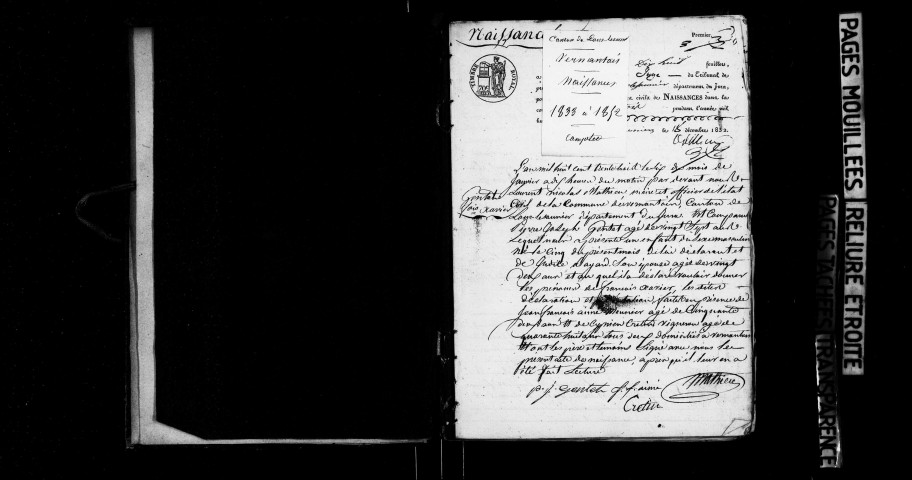 Naissanc
Canton de Lons-le-saunier
Vernantois
Naissances
1833 à 1852
Complet
Premier
Dix huit feuillets,
Juge du Tribunal de
département du Jura,
civils de NAISSANCES dans la
pendant l'année mil
décembre 1832.
TIMBRE ROYAL
Gentet
fois xavier
L'an mil huit cent trente trois le six du mois de
Janvier à dix heures du matin par devant nous
Laurent Nicolas Mathieu maire et officier de l'état
Civil de la Commune de vernantois, Canton de
Lons le saunier département du jura est Comparu
Pierre Joseph Gentet agé de vingt sept ans
Lequel nous a présenté un enfant du sexe masculin
né le cinq du présent mois de lui déclarant et
de son épouse agée de vingt
deux ans et au quel il a déclaré vouloir donner
les prénoms de françois xavier, les dites
déclaration et présentation faites en présence de
jean françois aimé agé de Cinquante
deux ans et de Cyprien Cretin vigneron agé de
quarante huit ans tous deux domiciliés à vernantois
et ont les père et temoins signé avec nous le
présent acte de naissance, après qu'il leur en a
été fait Lecture
p. j. gentet j. f. aimé Mathieu
Cretin
PAGES MOUILLEES RELIURE ETROITE
PAGES TACHEES TRANSPARENCE